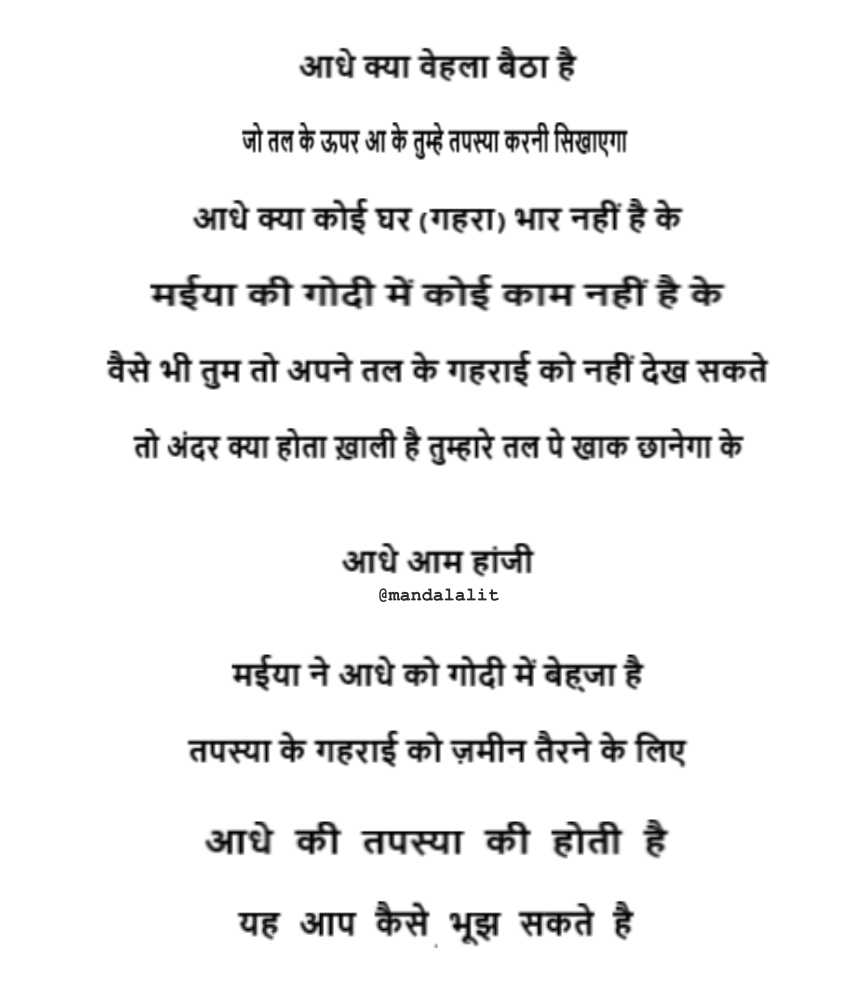 आधे क्या वेहला बैठा है
जो तल के ऊपर आ के तुम्हे तपस्या करनी सिखाएगा
आधे क्या कोई घर (गहरा) भार नहीं है के
मईया की गोदी में कोई काम नहीं है के
वैसे भी तुम तो अपने तल के गहराई को नहीं देख सकते
तो अंदर क्या होता ख़ाली है तुम्हारे तल पे खाक छानेगा के
आधे आम हांजी
@mandalalit
मईया ने आधे को गोदी में बेह्जा है
तपस्या के गहराई को ज़मीन तैरने के लिए
आधे की तपस्या की होती है
यह आप कैसे भूझ सकते है